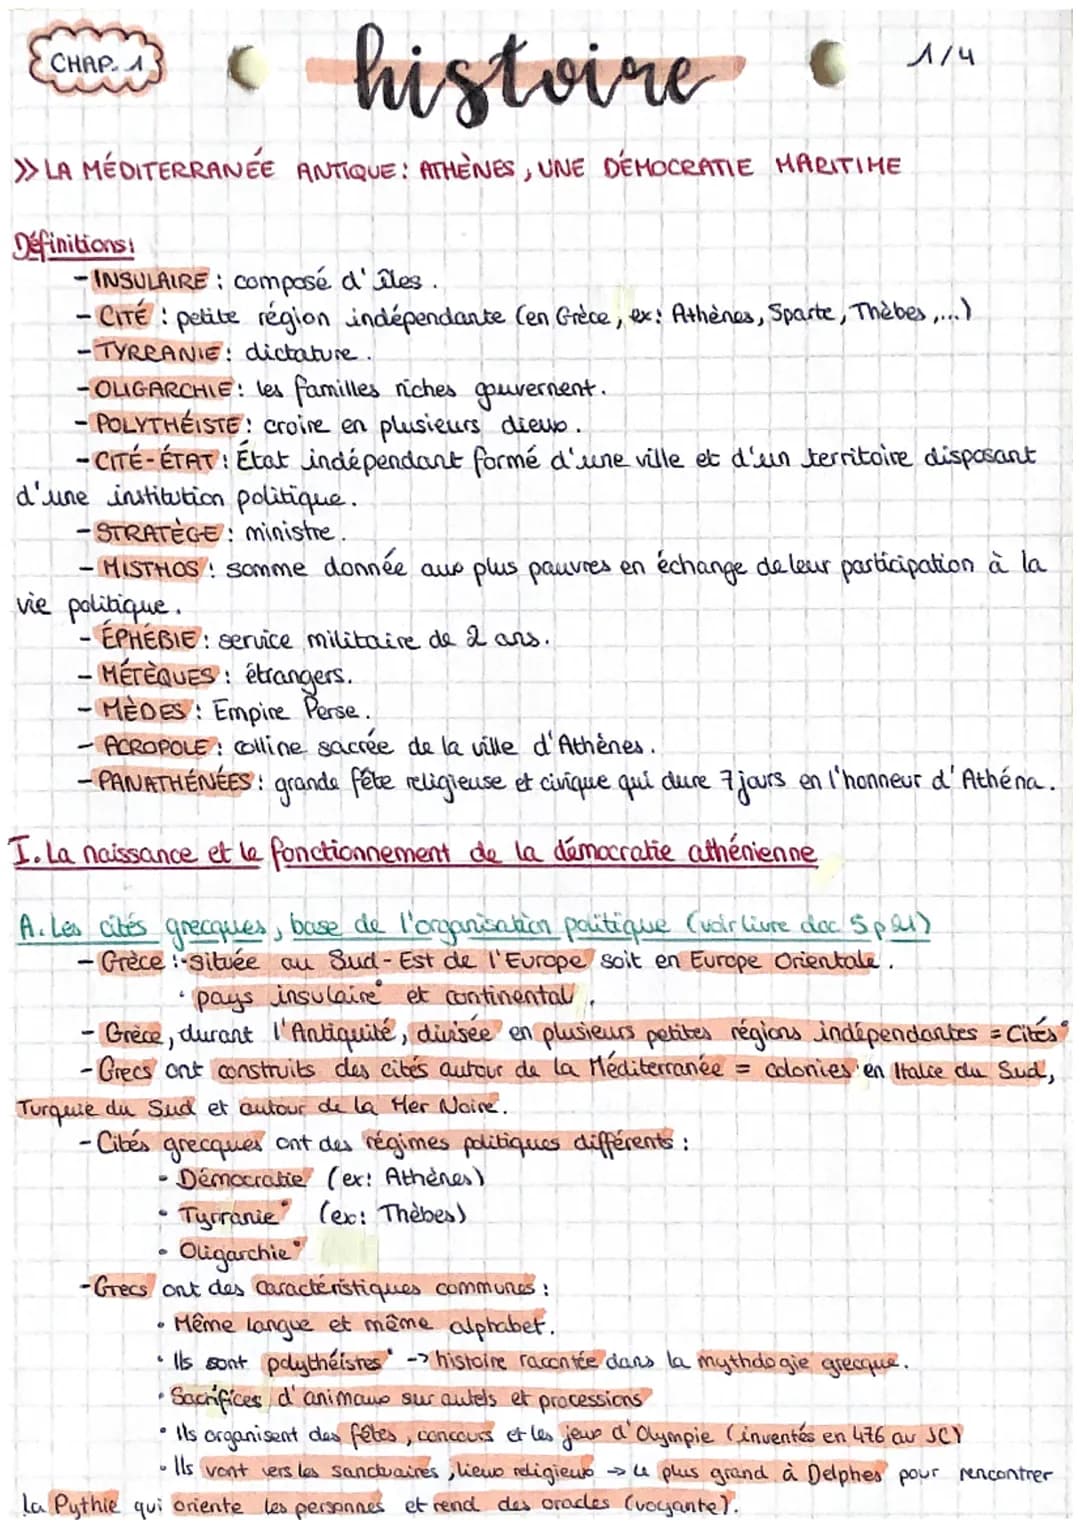 CHAP. 1
histoire
1/4
>> LA MÉDITERRANÉE ANTIQUE: ATHÈNES, UNE DÉMOCRATIE MARITIME
Définitions:
- INSULAIRE : composé d'îles.
- CITÉ : petite région indépendante (en Grèce, ex: Athènes, Sparte, Thèbes,...)
- TYRRANIE : dictature.
- OLIGARCHIE : les familles riches gouvernent.
- POLYTHÉISTE : croire en plusieurs dieux.
- CITÉ-ÉTAT : État indépendant formé d'une ville et d'un territoire disposant
d'une institution politique.
- STRATÈGE : ministre.
- MISTHOS : somme donnée aux plus pauvres en échange de leur participation à la
vie politique.
- ÉPHÉBIE : service militaire de 2 ans.
- MÉTÈQUES : étrangers.
- MÈDES : Empire Perse.
- ACROPOLE : colline sacrée de la ville d'Athènes.
- PANATHÉNÉES : grande fête religieuse et civique qui dure 7 jours en l'honneur d'Athéna.
I. La naissance et le fonctionnement de la démocratie athénienne
A. Les cités grecques, base de l'organisation politique (voir livre doc 5 p
- Grèce : • située au Sud-Est de l'Europe soit en Europe Orientale.
• pays insulaire° et continental.
- Grèce, durant l'Antiquité, divisée en plusieurs petites régions indépendantes = Cités°
- Grecs ont construits des cités autour de la Méditerranée = colonies en Italie du Sud,
Turquie du Sud et autour de la Mer Noire.
- Cités grecques ont des régimes politiques différents :
• Démocratie (ex: Athènes)
• Tyrranie° (ex: Thèbes)
• Oligarchie°
- Grecs ont des caractéristiques communes :
• Même langue et même alphabet.
• Ils sont polythéistes° -> histoire racontée dans la mythologie grecque.
• Sacrifices d'animaux sur autels et processions
• Ils organisent des fêtes, concours et les jeux d'Olympie (inventés en 476 av JC)
• Ils vont vers les sanctuaires, lieux religieux -> le plus grand à Delphes pour rencontrer
la Pythie qui oriente les personnes et rend des oracles (voyante).